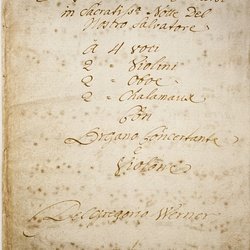 in
Notte Del
Nostro Salvatore
A 4 voci
2 Violini
2 Oboe
2 Chalamaux
Con
Organo Concertante
e
Violone
Del Gregorio Werner